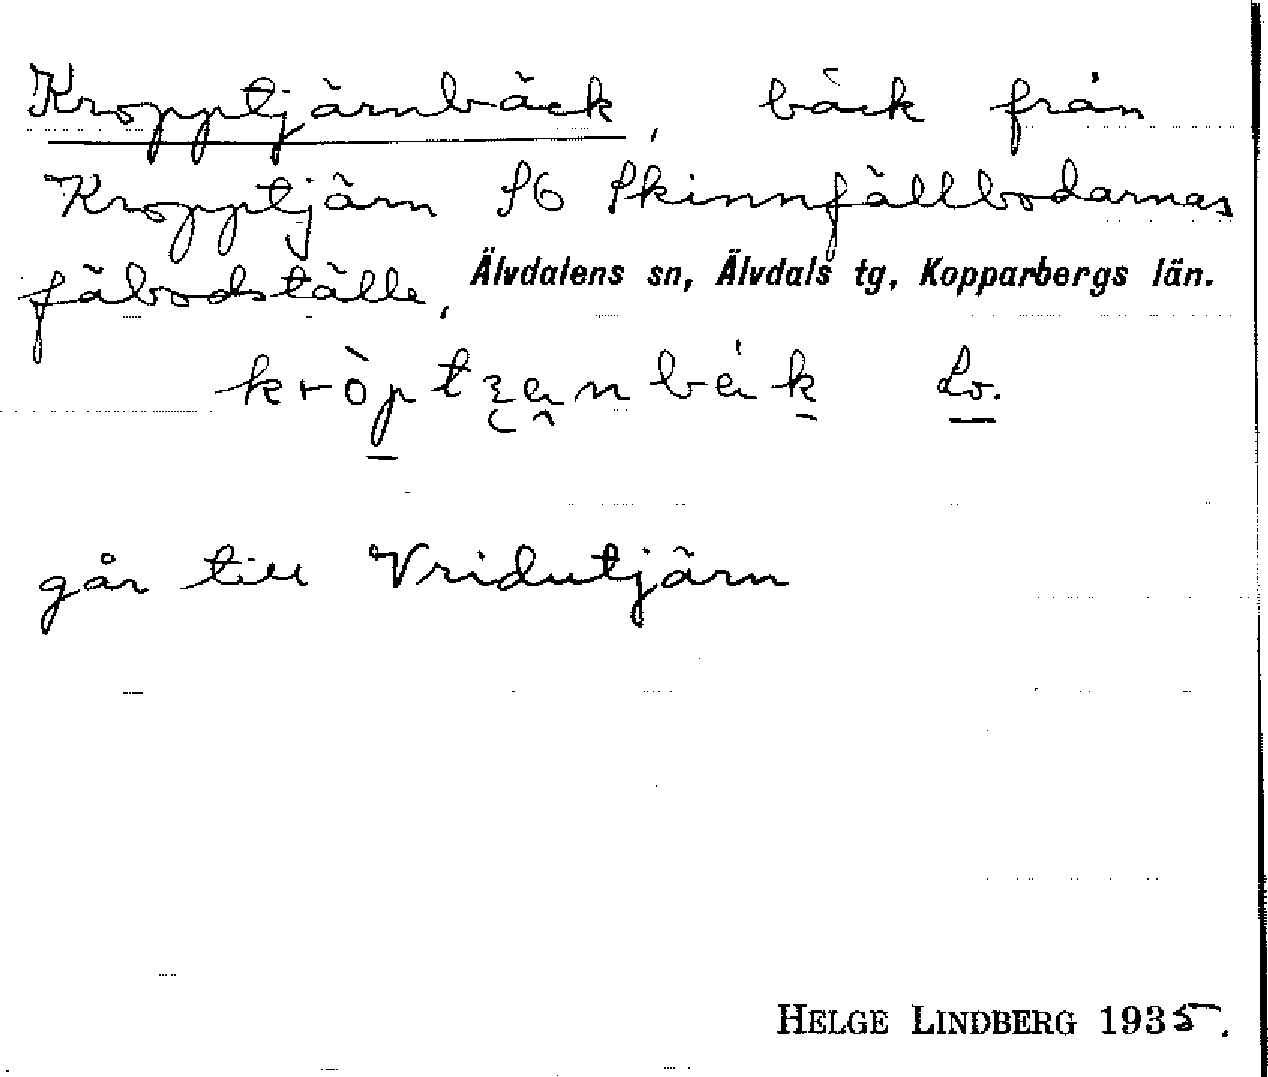 Kropptjärnbäck, bäck från
Kropptjärn SO Skinnfällbodarnas
fäbodställe, Älvdalens sn, Älvdals tg, Kopparbergs län.
Lo.
går till Vridutjärn
HELGE LINDBERG 1935.